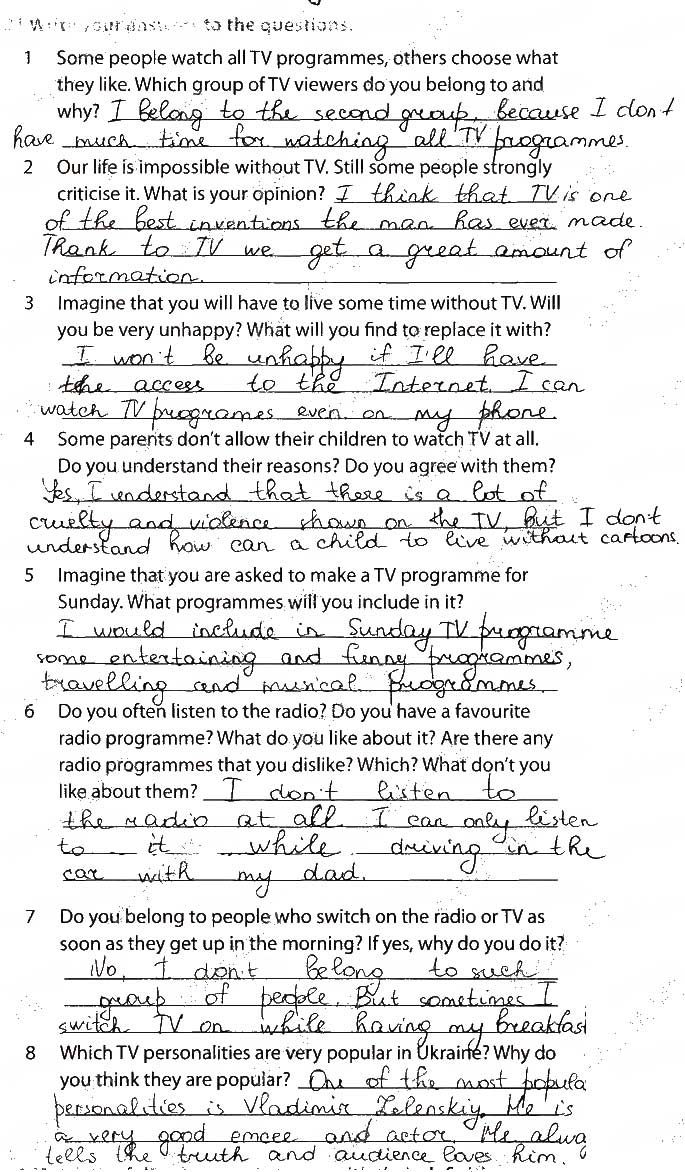 Write your answers to the questions.
1 Some people watch all TV programmes, others choose what
they like. Which group of TV viewers do you belong to and
why? I belong to the second group, because I don't
have much time for watching all TV programmes.
2 Our life is impossible without TV. Still some people strongly
criticise it. What is your opinion? I think that TV is one
of the best inventions the man has ever made.
Thank to TV we get a great amount of
information.
3 Imagine that you will have to live some time without TV. Will
you be very unhappy? What will you find to replace it with?
I won't be unhappy if I'll have
the access to the Internet. I can
watch TV programes even on my phone.
4 Some parents don't allow their children to watch TV at all.
Do you understand their reasons? Do you agree with them?
Yes, I understand that there is a lot of
cruelty and violence shown on the TV, but I don't
understand how can a child to live without cartoons.
5 Imagine that you are asked to make a TV programme for
Sunday. What programmes will you include in it?
I would include in Sunday TV programme
some entertaining and funny programmes,
travelling and musical programmes.
6 Do you often listen to the radio? Do you have a favourite
radio programme? What do you like about it? Are there any
radio programmes that you dislike? Which? What don't you
like about them? I don't listen to
the radio at all I can only listen
to it while driving in the
car with my dad.
7 Do you belong to people who switch on the radio or TV as
soon as they get up in the morning? If yes, why do you do it?
No, I don't belong to such
group of people. But sometimes I
switch TV on while having my breakfast
8 Which TV personalities are very popular in Ukraine? Why do
you think they are popular? One of the most popula
personalities is Vladimir Zelenskiy. He is
a very good emcee and actor. He alwa
tells the truth and audience loves him.